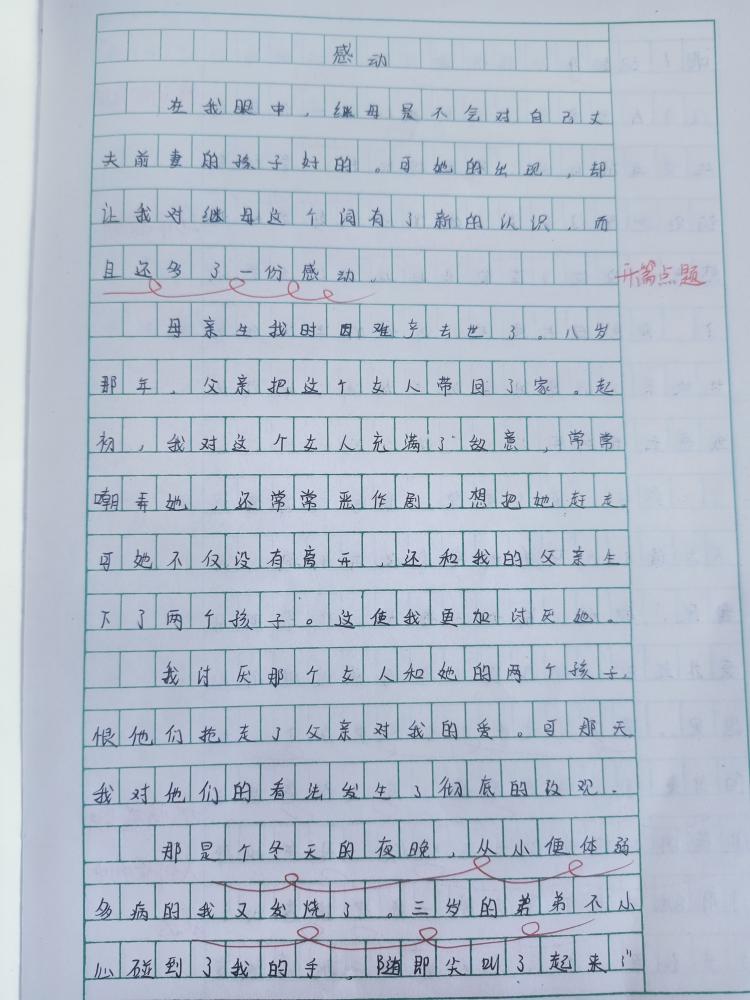 感动
在我眼中，继母是不会对自己丈
夫前妻的孩子好的。可她的出现，却
让我对继母这个词有了新的认识，而
且还多了一份感动。
开篇点题
母亲生我时因难产去世了。八岁
那年，父亲把这个女人带回了家。起
初，我对这个女人充满了敌意，常常
嘲弄她，还常常恶作剧，想把她赶走。
可她不仅没有离开，还和我的父亲生
下了两个孩子。这使我更加讨厌她。
我讨厌那个女人和她的两个孩子，
恨他们抢走了父亲对我的爱。可那天
我对他们的看法发生了彻底的改观。
那是个冬天的夜晚，从小便体弱
多病的我又发烧了。三岁的弟弟不小
心碰到了我的手。随即尖叫了起来